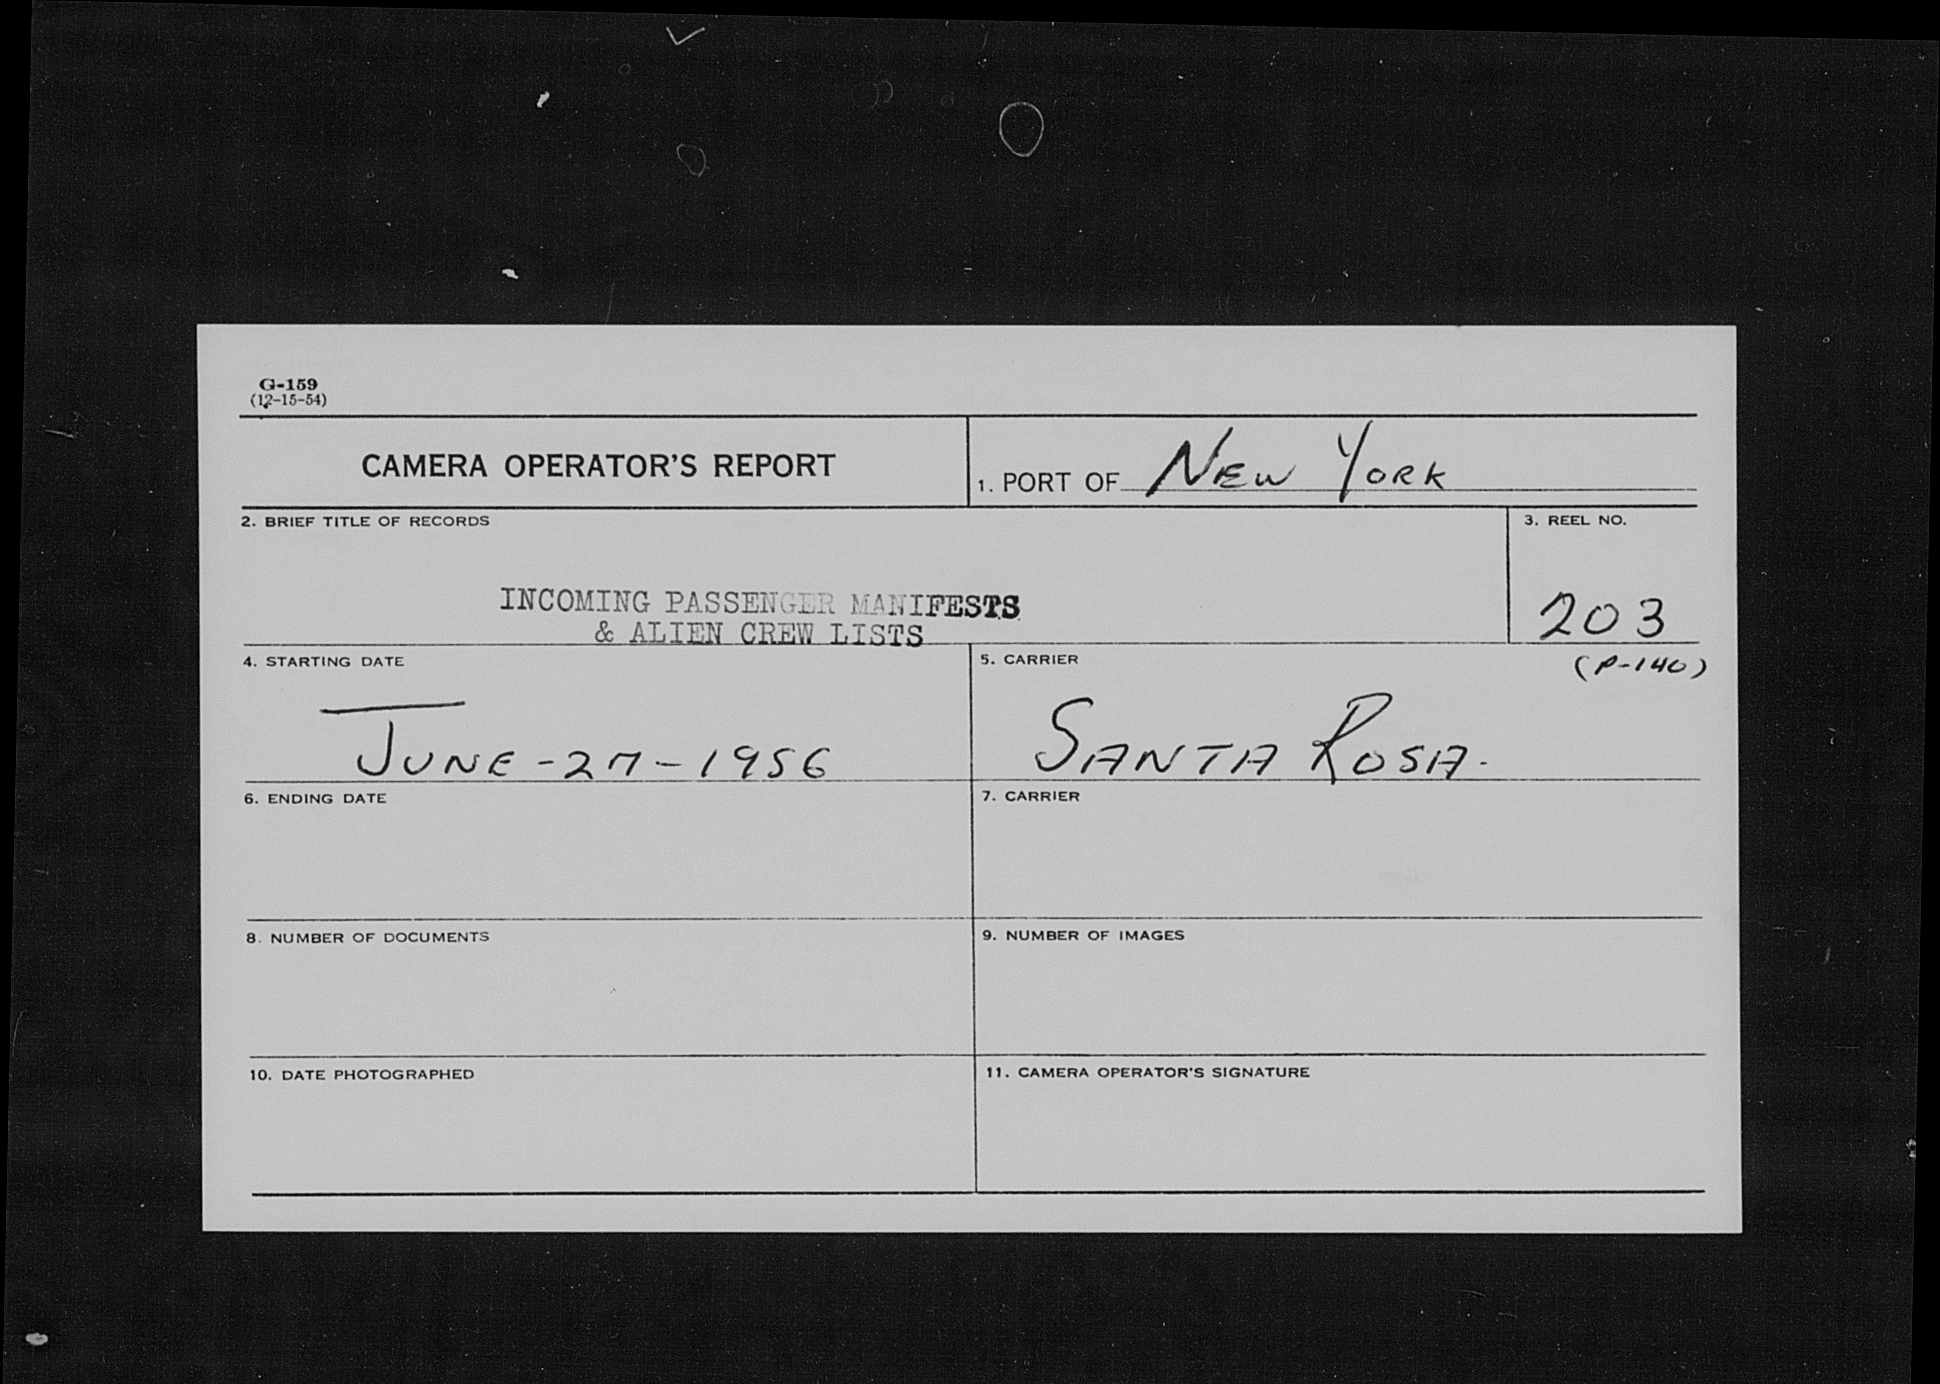 G-159
(12-15-54)
CAMERA OPERATOR'S REPORT
1. PORT OF NEW YORK
2. BRIEF TITLE OF RECORDS
3. REEL NO.
INCOMING PASSENGER MANIFESTS
& ALIEN CREW LISTS
203
(P-140)
4. STARTING DATE
5. CARRIER
JUNE-27-1956
SANTA ROSA.
6. ENDING DATE
7. CARRIER
8. NUMBER OF DOCUMENTS
9. NUMBER OF IMAGES
10. DATE PHOTOGRAPHED
11. CAMERA OPERATOR'S SIGNATURE